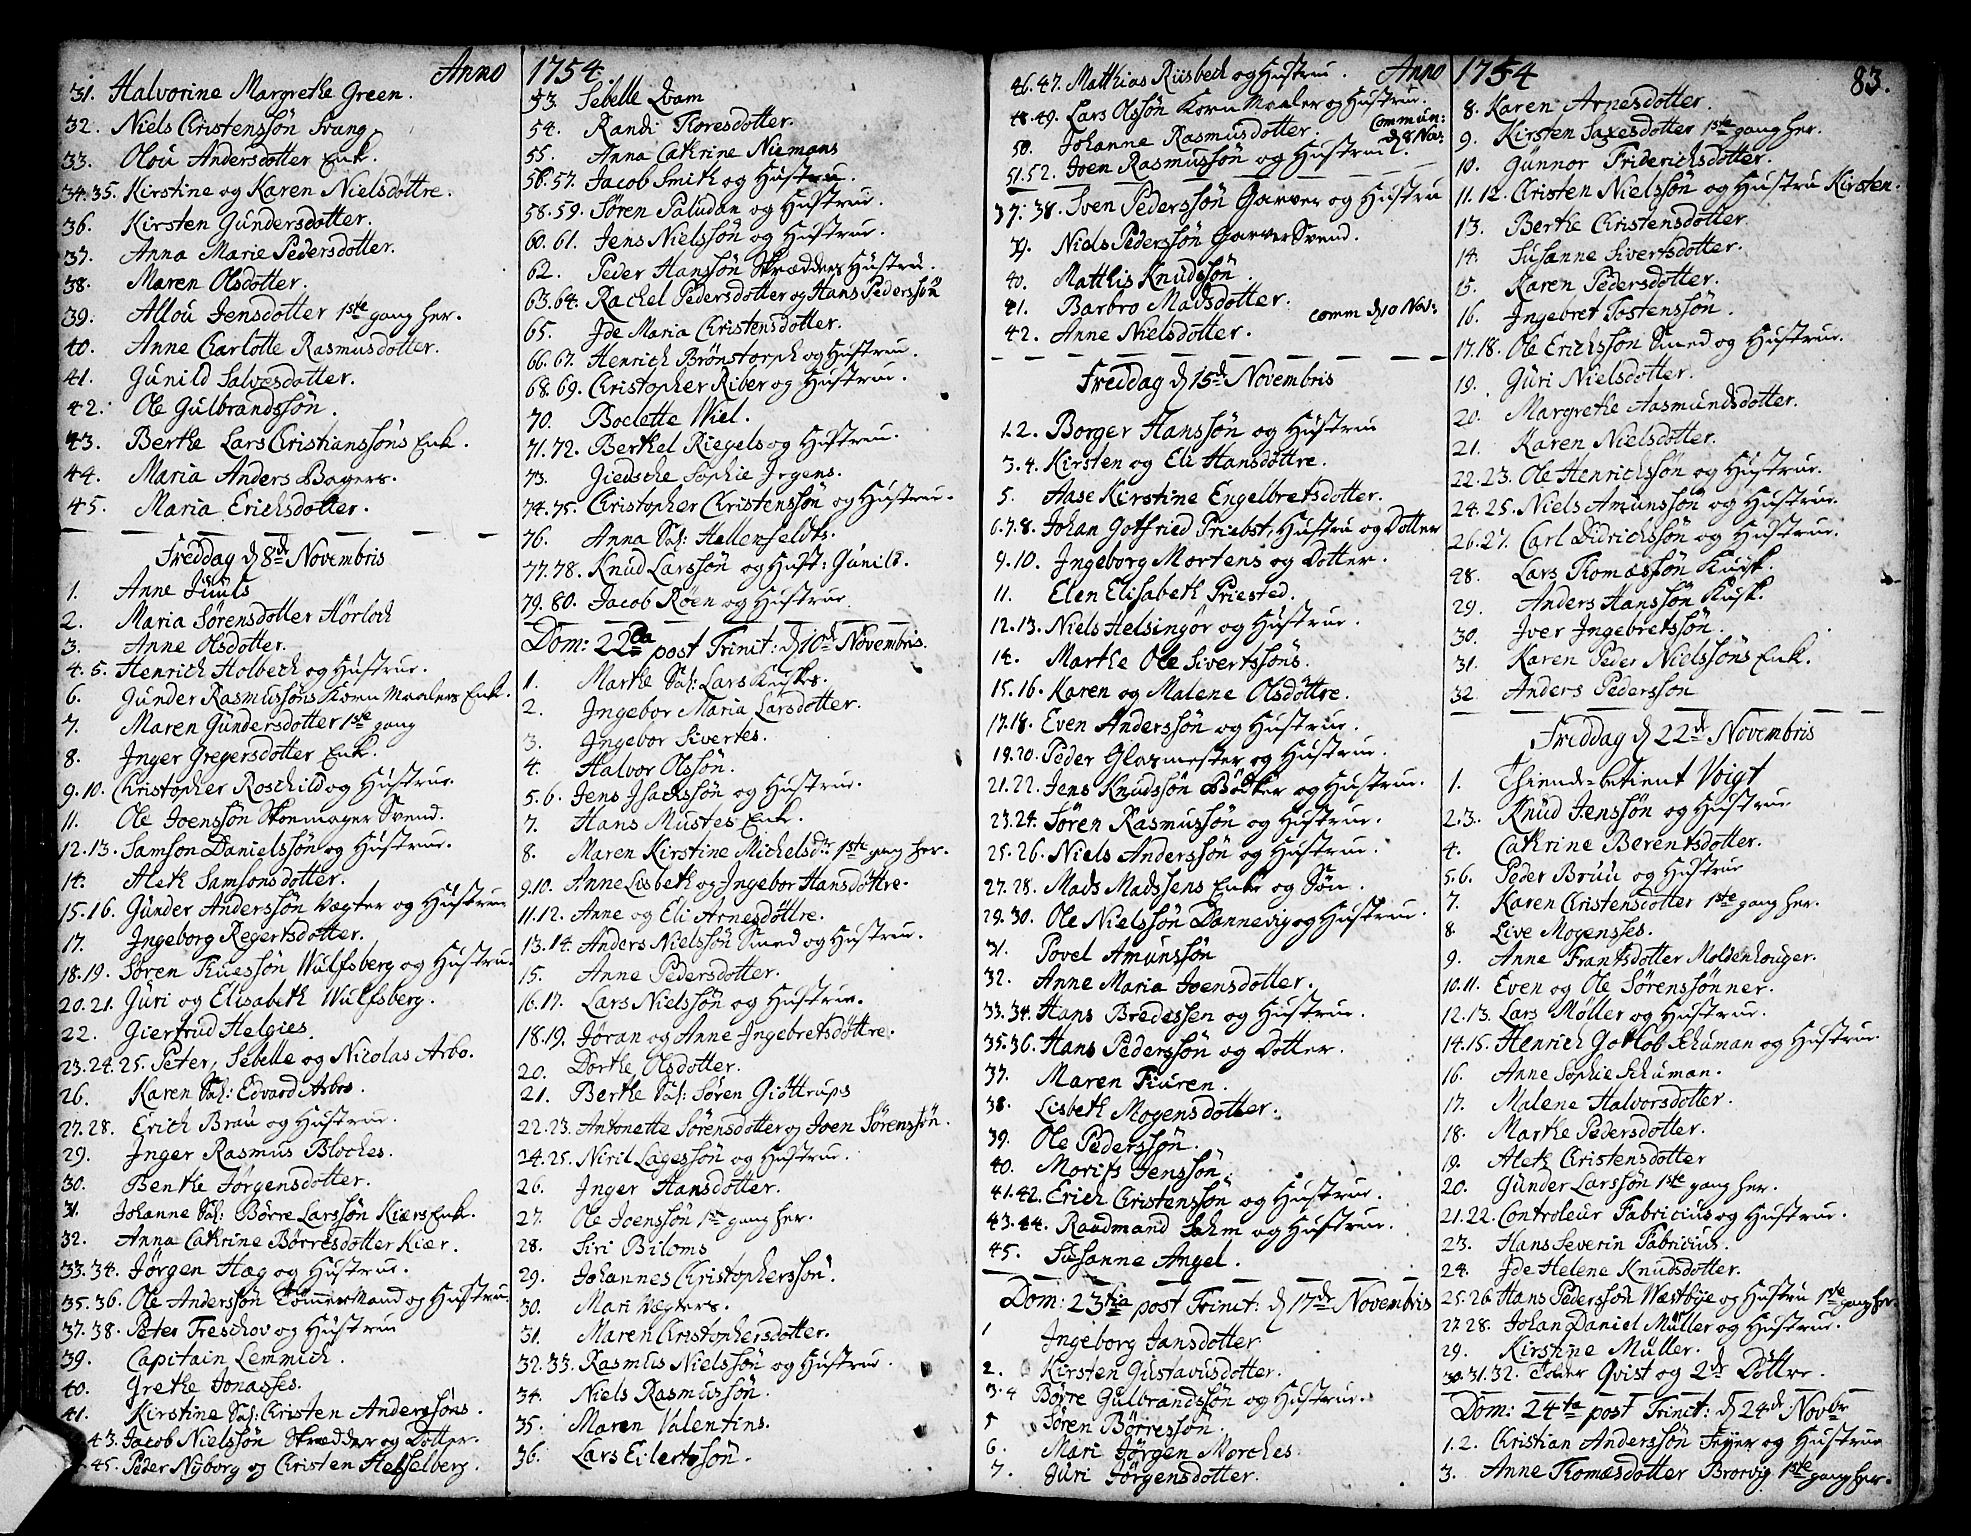 Anno 1754.
31. Halvorine Margrethe Green.
32. Niels Christenssön Svang
33. Olou Andersdotter Enk.
34.35. Kirstine og Karen Nielsdøttre.
36. Kirsten Gundersdotter.
37. Anna Marie Pedersdotter.
38. Maren Olsdotter.
39. Allou Jensdotter 1ste gang her.
40. Anne Charlotte Rasmusdotter.
41. Gunild Salvesdotter.
42. Ole Gulbrandssön.
43. Berthe Lars Christianssöns Enk.
44. Maria Anders Bagers.
45. Maria Erichsdotter.
Freddag d 8de Novembris
1. Anne Juuls
2. Maria Sörensdotter Hörloch
3. Anne Olsdotter.
4.5. Henrich Holbech og Hustrue.
6. Gunder Rasmussöns Korn Maalers Enk.
7. Maren Gundersdotter 1ste gang
8. Inger Gregersdotter Enk.
9.10. Christopher Roschild og Hustrue.
11. Ole Joenssön Skoemager Svend.
12.13. Samson Danielssön og Hustrue.
14. Aleth Samsonsdotter.
15.16. Gunder Anderssön Vægter og Hustrue
17. Ingeborg Regertsdotter.
18.19. Sören Truessön Wulfsberg og Hustru.
20.21. Juri og Elisabeth Wulfsberg.
22. Giertrud Helgies.
23.24.25. Peter, Sebelle og Nicolas Arbo.
26. Karen Sal: Edvard Arbos.
27.28. Erich Brau og Hustrue.
29. Inger Rasmus Bloches.
30. Benthe Jörgensdotter.
31. Johanne Sal: Börre Larssön Kiærs Enk.
32. Anna Cathrine Börresdotter Kiær.
33.34. Jörgen Hæg og Hustrue.
35.36. Ole Anderssön Tömmermand og Hustru.
37.38. Peter Treschov og Hustrue
39. Capitain Lemmich.
40. Grethe Jonasses.
41. Kirstine Sal: Christen Anderssöns.
43. Jacob Nielssön Skrædder og Dotter.
45. Peder Nyborg og Christen Hesselberg.
53. Sebelle Qvam
54. Randi Thoresdotter.
55. Anna Cathrine Niemans
56.57. Jacob Smith og Hustrue.
58.59. Sören Paludan og Hustrue.
60.61. Jens Nielssön og Hustrue.
62. Peder Hanssön Skrædders Hustru.
63.64. Rachel Pedersdotter og Hans Pederssön
65. Ide Maria Christensdotter.
66.67. Henrich Brönstorph og Hustrue.
68.69. Christopher Riber og Hustrue.
70. Boelette Wiel.
71.72. Berthel Riegels og Hustrue.
73. Giedsche Sophie Irgens.
74.75. Christopher Christenssön og Hustrue.
76. Anna Sal: Hellenfeldts.
77.78. Knud Larssön og Hust: Gunild.
79.80. Jacob Röen og Hustrue
Dom: 22da post Trinit: d 10de Novembris.
1. Marthe Sal: Lars Kusks.
2. Ingebor Maria Larsdotter.
3. Ingebor Sivertes.
4. Halvor Olssön.
5.6. Jens Isachssön og Hustrue.
7. Hans Mustes Enk.
8. Maren Kirstine Michelsdtr 1ste gang her.
9.10. Anne Lisbeth og Ingebor Hansdöttre.
11.12. Anne og Eli Arnesdöttre.
13.14. Anders Nielssön Smed og Hustrue.
15. Anne Pedersdotter.
16.17. Lars Nielssön og Hustrue.
18.19. Jöran og Anne Ingebretsdöttre.
20. Dorthe Olsdotter.
21. Berthe Sal: Sören Giöttrups
22.23. Antonette Sörensdotter og Joen Sörenssön.
24.25. Niril Lagessön og Hustrue.
26. Inger Hansdotter.
27. Ole Joenssön 1ste gang her.
28. Siri Biloms
29. Johannes Christopherssön.
30. Mari Vægters.
31. Maren Christophersdotter.
32.33. Rasmus Nielssön og Hustrue.
34. Niels Rasmussön.
35. Maren Valentins.
36. Lars Eilertssön.
Anno 1754
83.
46.47. Matthias Riisbech og Hustrue.
48.49. Lars Olssön Korn Maaler og Hustrue.
50. Johanne Rasmusdotter. Commun:
51.52. Joen Rasmussön og Hustrue. d 8 Nov:
37. 38. Sven Pederssön Garver og Hustru
39. Niels Pederssön Garver Svend.
40. Matthis Knudssön.
41. Barbro Madsdotter.
comm d 10 Nov:
42. Anne Nielsdotter.
Freddag d 15de Novembris
1.2. Borger Hanssön og Hustrue
3.4. Kirsten og Eli Hansdöttre.
5. Aase Kirstine Engelbretsdotter.
6.7.8. Johan Gotfried Priebst, Hustru og Dotter
9.10. Ingeborg Mortens og Dotter.
11. Elen Elisabeth Priested.
12.13. Niels Helsingör og Hustrue.
14. Marthe Ole Sivertssöns.
15.16. Karen og Malene Olsdöttre.
17.18. Even Anderssön og Hustrue.
19.20. Peder Glasmester og Hustrue.
21.22. Jens Knudssön Bödker og Hustrue.
23.24. Sören Rasmussön og Hustrue.
25.26. Niels Anderssön og Hustrue.
27.28. Mads Madssens Enke og Sön.
29.30. Ole Nielssön Dannevig og Hustrue.
31. Povel Amunssön
32. Anne Maria Joensdotter.
33.34. Hans Bredessen og Hustrue.
35.36. Hans Pederssön og Dotter.
37. Maren Fiuren.
38. Lisbeth Mogensdotter.
39. Ole Pederssön.
40. Morits Jenssön.
41.42. Erich Christenssön og Hustrue.
43.44. Raadmand Sahm og Hustrue.
45. Susanne Angel.
Dom: 23tia post Trinit: d 17de Novembris
1 Ingeborg Jansdotter
2. Kirsten Gustavusdotter.
3.4 Börre Gulbrandssön og Hustrue.
5 Sören Börressön.
6. Mari Jörgen Morches.
7. Juri Jörgensdotter.
8. Karen Arnesdotter.
9. Kirsten Saxesdotter 1ste gang her.
10. Gunnor Friderichsdotter.
11.12. Christen Nielssön og Hustru Kirsten.
13. Berthe Christensdotter
14. Susanne Sivertsdotter.
15. Karen Pedersdotter.
16. Ingebret Tostenssön.
17.18. Ole Erichssön Smed og Hustrue.
19. Guri Nielsdotter.
20. Margrethe Aasmundsdotter.
21. Karen Nielsdotter.
22.23. Ole Henrichssön og Hustrue.
24.25. Niels Amunssön og Hustrue.
26.27. Carl Didrichssön og Hustrue.
28. Lars Thomæssön Kusk.
29. Anders Hanssön Kusk.
30. Iver Ingebretssön.
31. Karen Peder Nielssöns Enk.
32 Anders Pederssön
Freddag d 22de Novembris
1. Thiende-betient Voigt
2.3. Knud Jenssön og Hustrue
4. Cathrine Berentsdotter.
5.6. Peder Bruu og Hustrue
7. Karen Christensdotter 1ste gang her.
8. Live Mogensses.
9. Anne Frantsdotter Moldenhouger.
10.11. Even og Ole Sörenssönner.
12.13. Lars Möller og Hustrue.
14.15. Henrich Gotlob Schuman og Hustrue.
16. Anne Sophie Schuman.
17. Malene Halvorsdotter.
18. Marthe Pedersdotter.
19. Aleth Christensdotter
20. Gunder Larssön 1ste gang her.
21.22. Controleur Fabricius og Hustrue.
23. Hans Severin Fabricius.
24. Ide Helene Knudsdotter.
25.26 Hans Pederssön Wæstbye og Hustru 1ste gang her.
27.28. Johan Daniel Müller og Hustrue.
29. Kirstine Müller.
30.31.32. Tolder Qvist og 2de Döttre.
Dom: 24ta post Trinit: d 24de Novbr
1.2. Christian Anderssön Fejer og Hustrue
3. Anne Thomæsdotter Brorvig 1ste gang her.